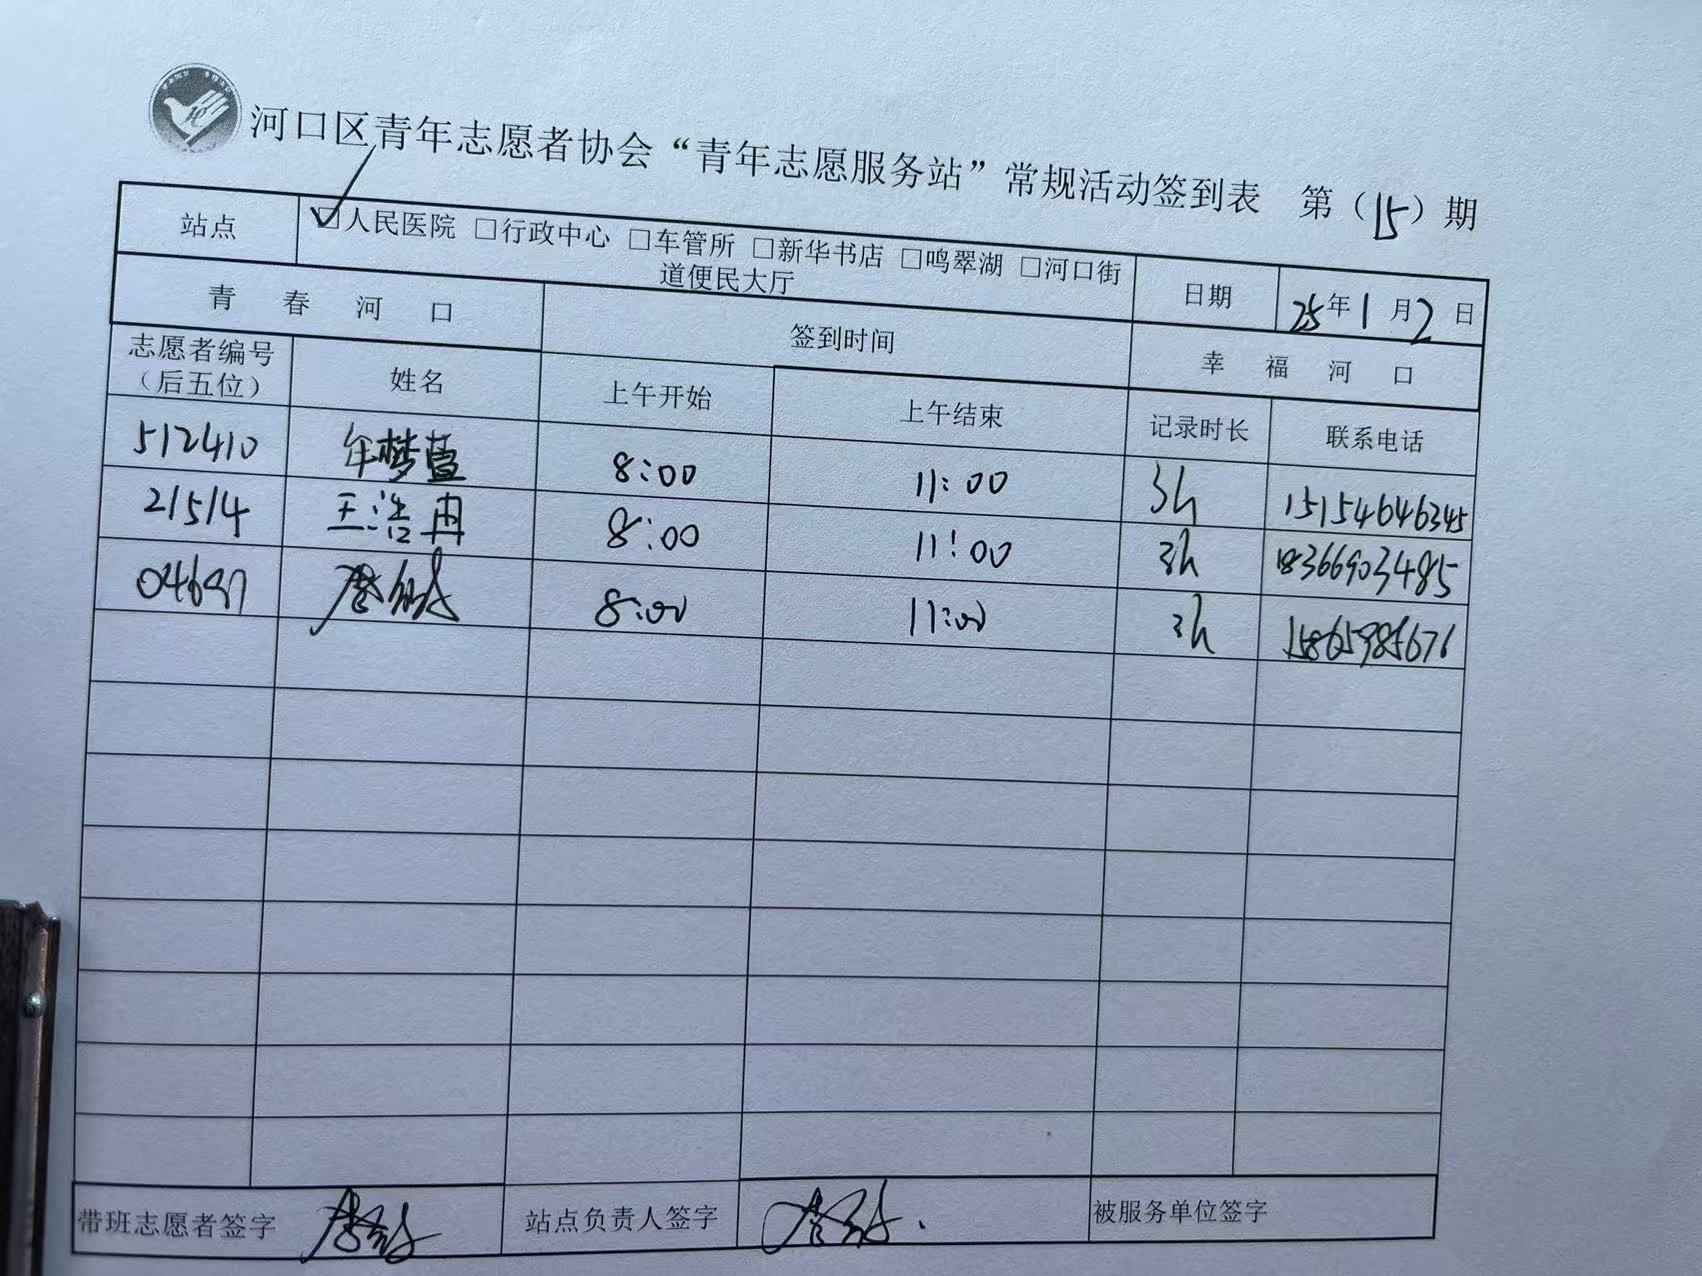 河口区青年志愿者协会“青年志愿服务站”常规活动签到表 第（15）期
站点 ☑人民医院 □行政中心 □车管所 □新华书店 □鸣翠湖 □河口街
道便民大厅
日期 25年1月2日
青 春 河 口 签到时间 幸 福 河 口
志愿者编号
（后五位） 姓名 上午开始 上午结束 记录时长 联系电话
512410 年梦萱 8:00 11:00 3h 15154646345
21514 王浩冉 8:00 11:00 3h 18366903485
8:00 11:00 3h 15865985676
带班志愿者签字 站点负责人签字 被服务单位签字